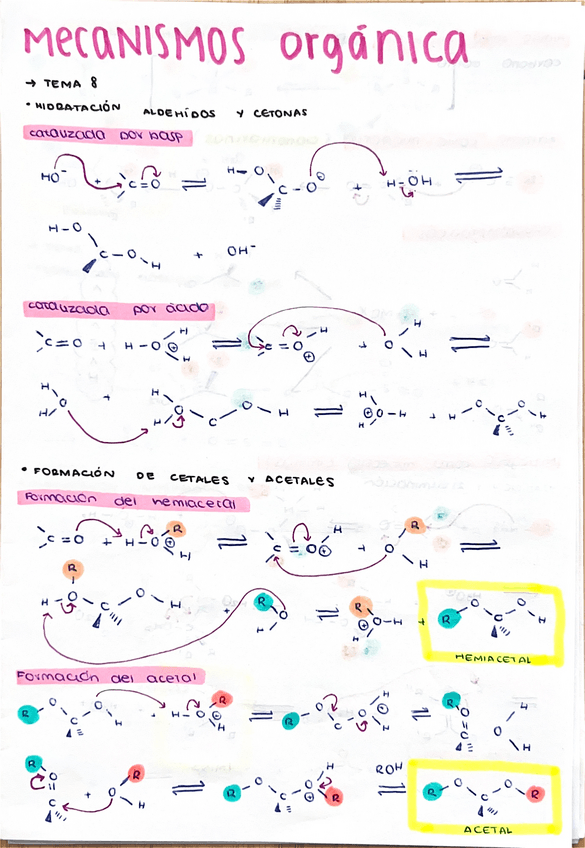 MECANISMOS orgánica
→ TEMA 8
• HIDRATACIÓN ALDEHÍDOS Y CETONAS
catalizada por base
HO⁻ + C=O ⇌ H-O C-O⊖ + H-ÖH ⇌
H-O C-O H + OH⁻
catalizada por ácido
C=O + H-O⊕ H H ⇌ C=O⊕ H + O H H ⇌
H H O + H H O C O-H ⇌ H H ⊕O-H + H O C O H
• FORMACIÓN DE CETALES Y ACETALES
Formación del hemiacetal
C=O + H-O⊕ R H ⇌ C=O⊕ H + O R H ⇌
R H-O C O H + R O H ⇌ R H ⊕O-H + R O C O H
HEMIACETAL
Formación del acetal
R O C O H + H-O⊕ R H ⇌ R O C O⊕ H H ⇌ R O C H O H
R O C + O R H ⇌ R O C O⊕ H R ROH ⇌ R O C O R
ACETAL